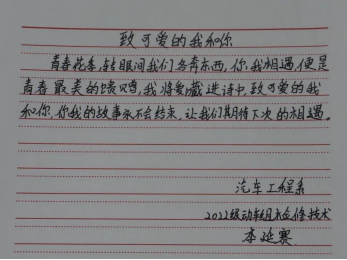 致可爱的我和你
青春花季,转眼间我们各奔东西,你我相遇便是
青春最美的馈赠,我将爱藏进诗中,致可爱的我
和你,你我的故事永不会结束,让我们期待下次的相遇。
汽车工程系
2022级动车组检修技术
李延赛